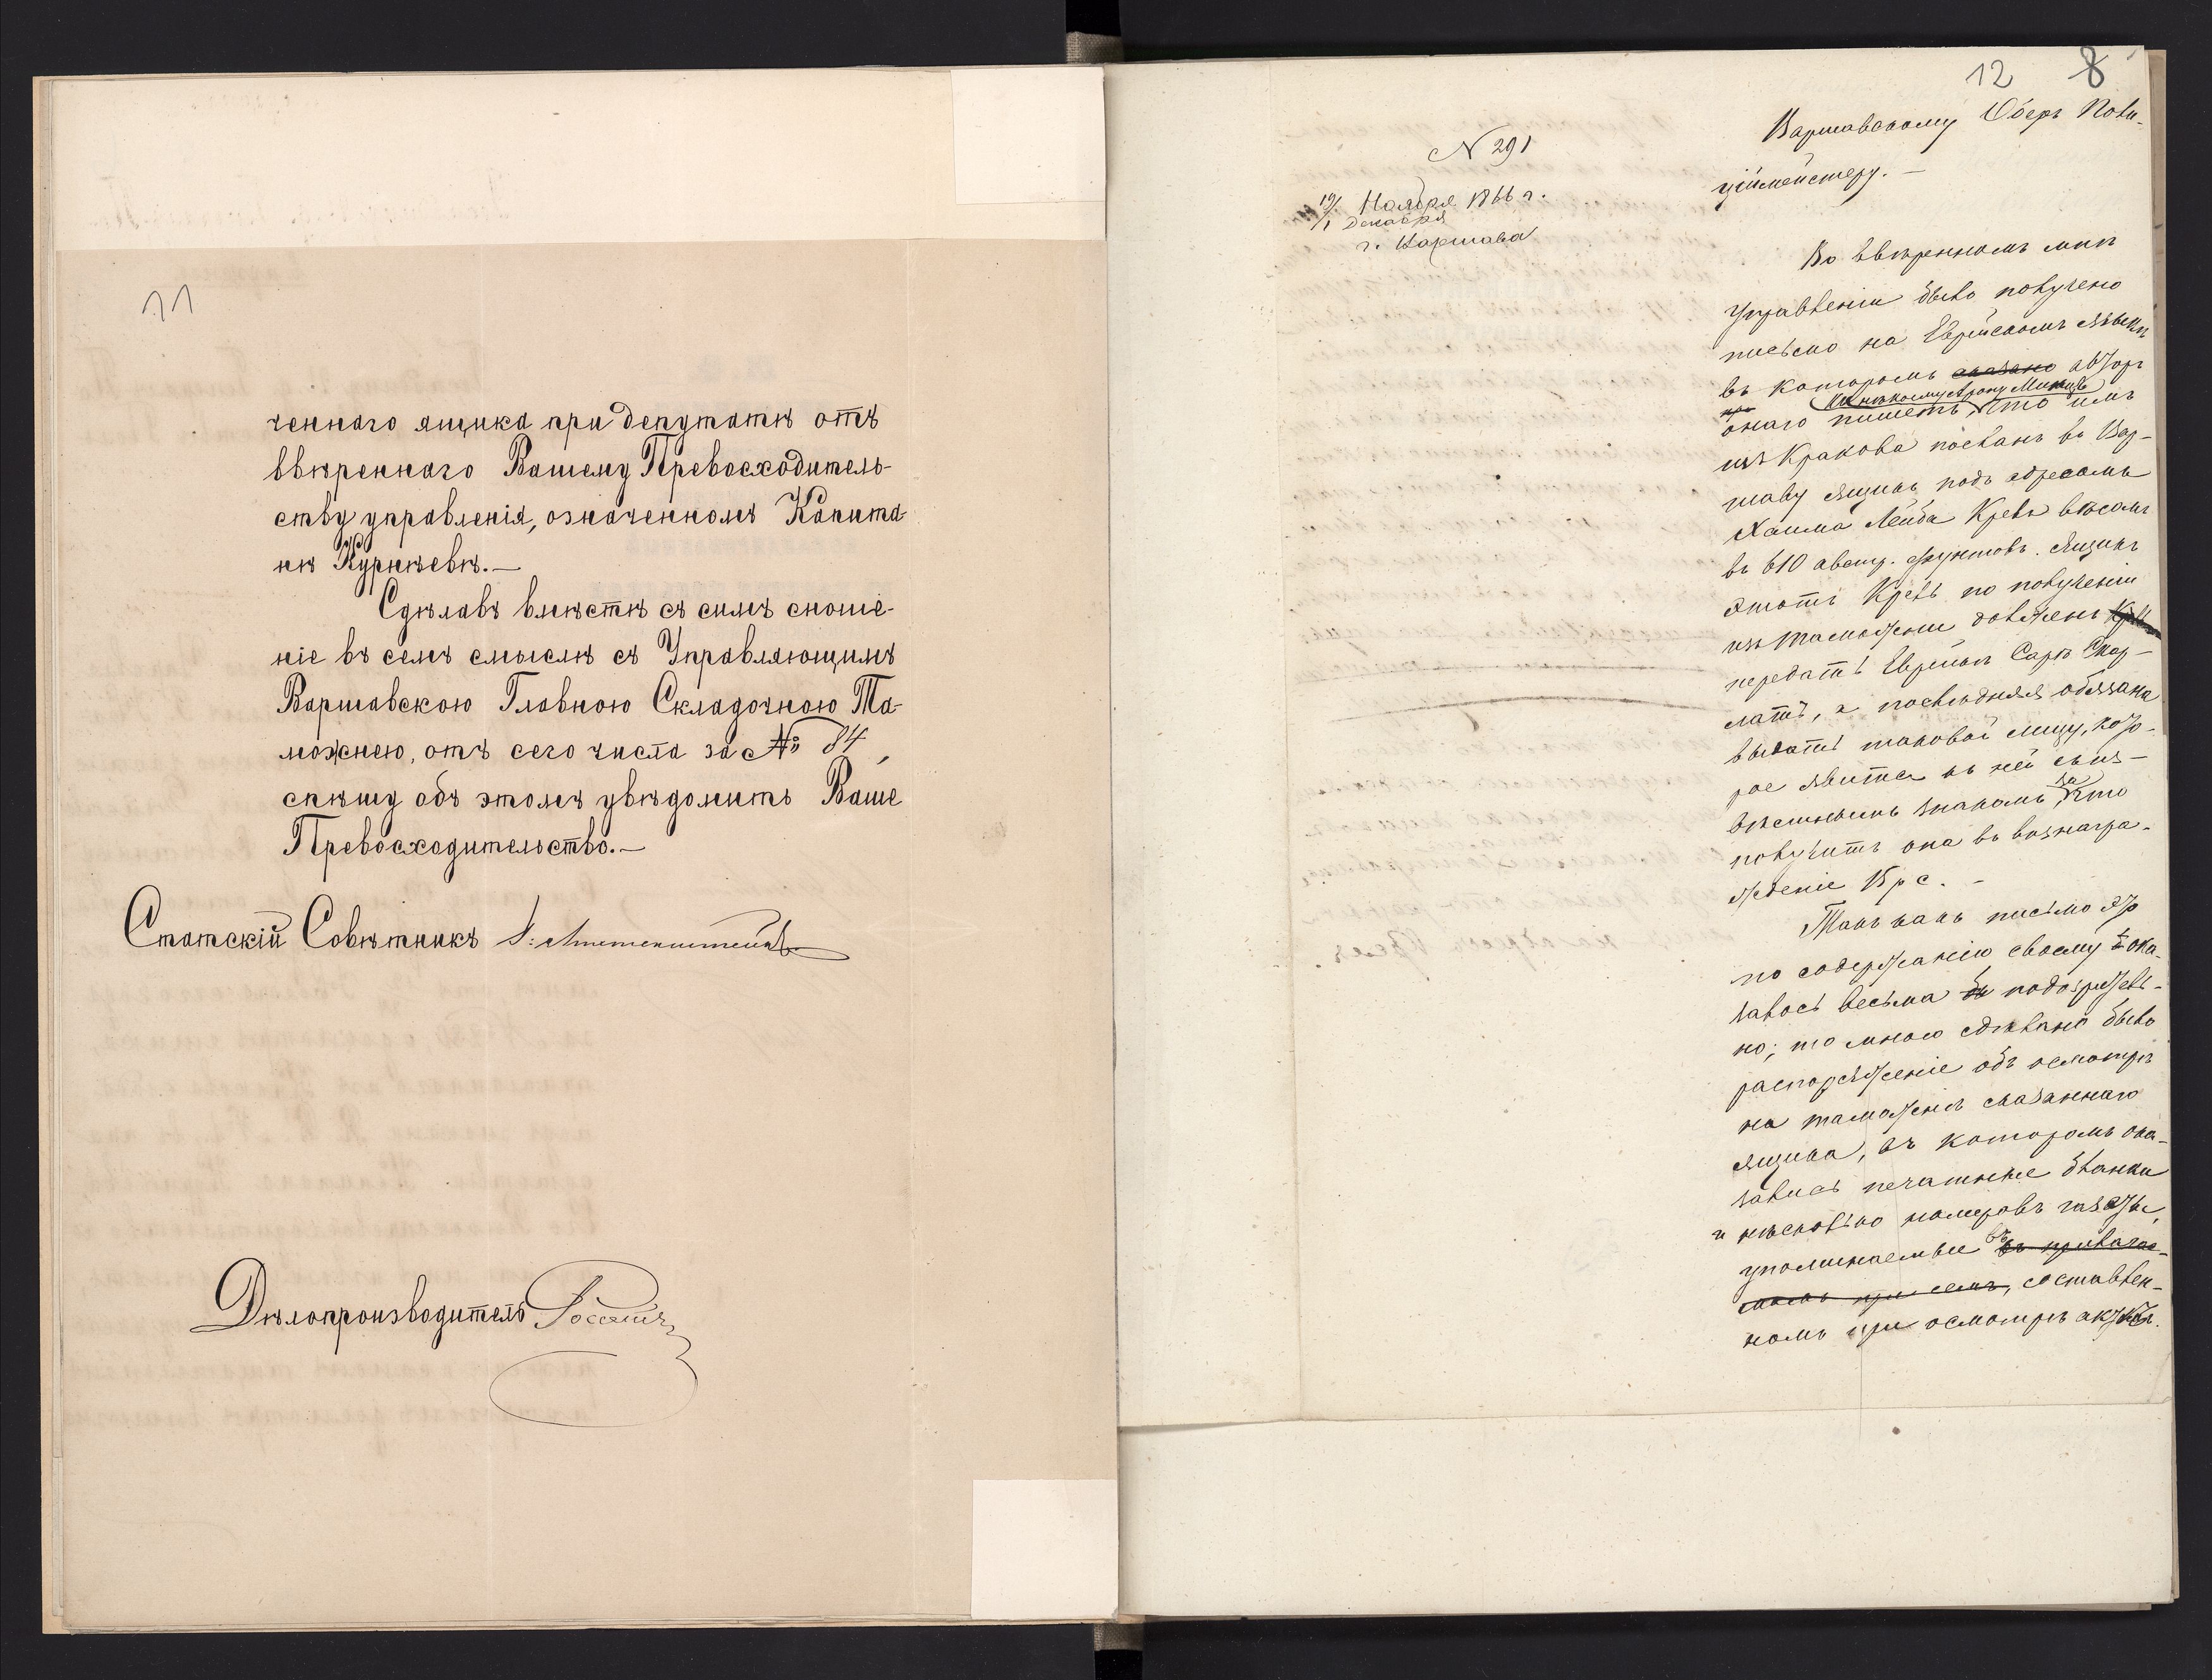 11
ченнаго ящика при депутатѣ отъ
ввѣреннаго Вашему Превосходитель-
ству управленія, означенномъ Капита-
нѣ Курнѣевѣ.—
Сдѣлавъ вмѣстѣ съ симъ сноше-
ніе въ семъ смыслѣ съ Управляющимъ
Варшавскою Главною Складочною Та-
можнею, отъ сего числа за № 84,
спѣшу объ этомъ увѣдомить Ваше
Превосходительство.—
Статскій Совѣтникъ
Дѣлопроизводитель
12 8
Варшавскому Оберъ Поли-
ціймейстеру.—
N 291
19/1 Ноября 1866 г.
Декабря
г. Варшава
Во ввѣренномъ мнѣ
управленіи было получено
письмо на Еврейскомъ языкѣ,
въ которомъ сказано авторъ
къ нѣкоему Арону Минцу
онаго пишетъ, что имъ
изъ Кракова посланъ въ Вар-
шаву ящикъ подъ адресомъ
Хаима Лейба Крель вѣсомъ
въ 610 австр. фунтовъ. Ящикъ
этотъ Крель по полученіи
изъ таможни долженъ
передать Еврейкѣ Сарѣ Шар-
латъ, а послѣдняя обязана
выдать таковой лицу, кото-
рое явится къ ней съ из-
вѣстнымъ знакомъ, за что
получитъ она въ вознагра-
жденіе 15 р с. -
Такъ какъ письмо это
по содержанію своему ока-
залось весьма подозритель-
но; то мною сдѣлано было
распоряженіе объ осмотрѣ
на таможнѣ сказаннаго
ящика, въ которомъ ока-
зались печатные бланки
и нѣсколько номеровъ газеты,
упоминаемые въ въ прилагае-
момъ при семъ, составлен-
номъ при осмотрѣ актѣ.